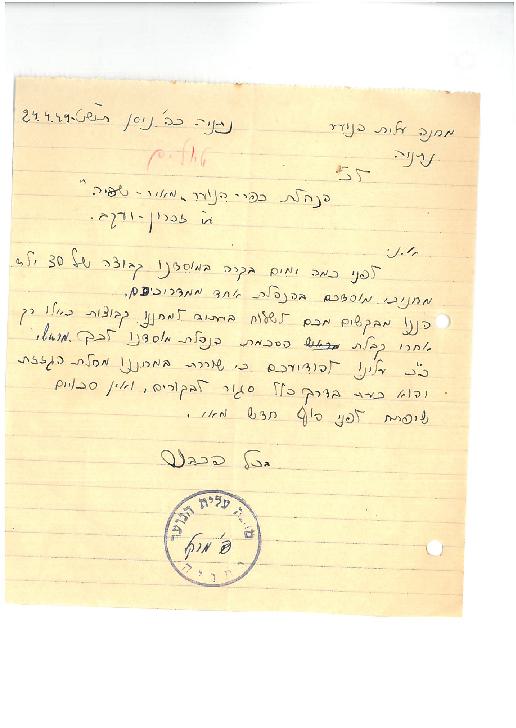 מחנה עלית הנוער נתניה כה' ניסן תש"ט 24.4.49
נתניה
טיולים
לכ'
הנהלת כפר-הנוער "מאיר-שפיה"
זכרון-יעקב.
א.נ.
לפני כמה ימים בקרה במוסדנו קבוצה של 30 ילד
מחניכי מוסדכם בהנהלת אחד ממדריכיכם.
הננו מבקשים מכם לשלוח בעתיד למחננו קבוצות כאלו רק
אחרי קבלת הסכמת הנהלת מוסדנו לכך מראש,
כ"כ עלינו להודיעכם כי שוררת במחננו מחלת הגזזת
והוא כעת בדרך כלל סגור לבקורים, ואין סכויים
שיפתח לפני סוף חדש מאי.
בכל הכבוד
מחנה עלית הנוער
נתניה